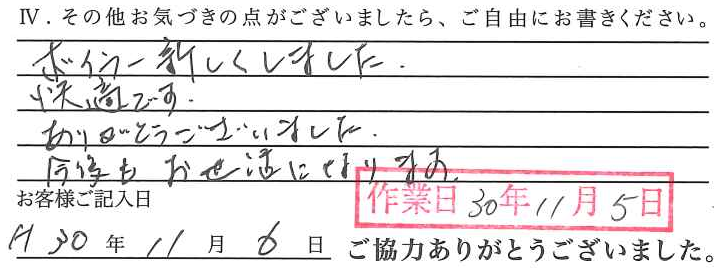 Ⅳ．その他お気づきの点がございましたら、ご自由にお書きください。
ボイラー新しくしました．
快適です．
ありがとうございました．
今後もお世話になります．
お客様ご記入日
作業日30年11月5日
H30年11月6日
ご協力ありがとうございました。